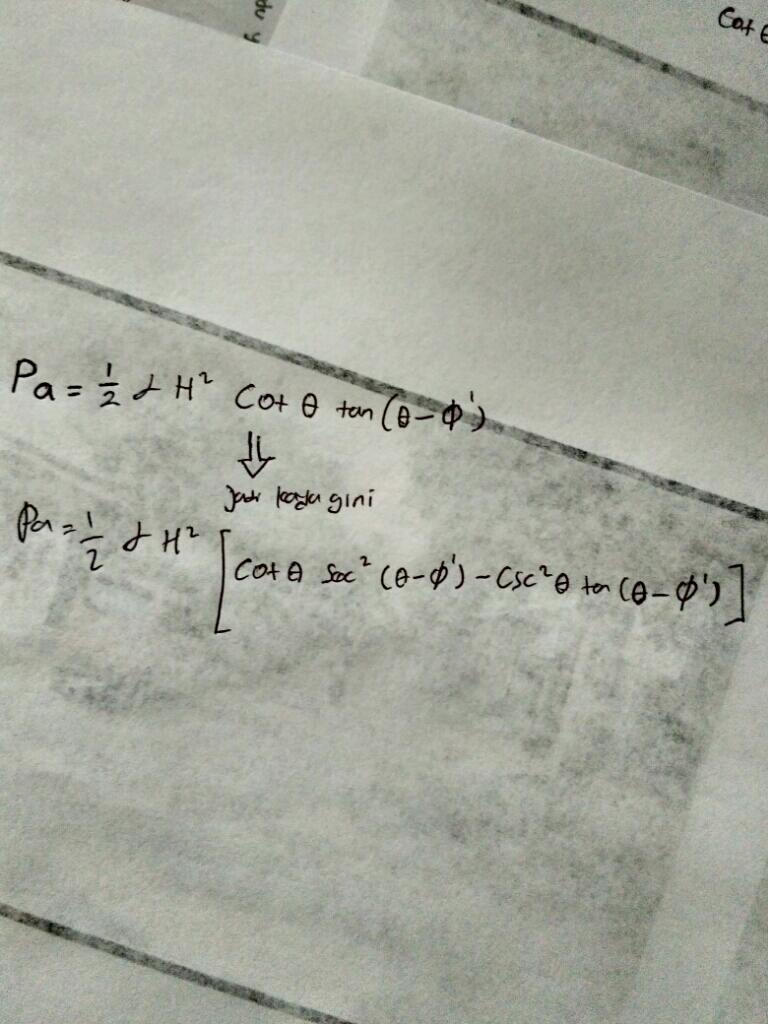 Cot θ
Pa = 1/2 γ H² Cot θ tan (θ - ϕ')
⇓
Jadi kaya gini
Pa = 1/2 γ H² [Cot θ Sec² (θ - ϕ') - Csc² θ tan (θ - ϕ')]